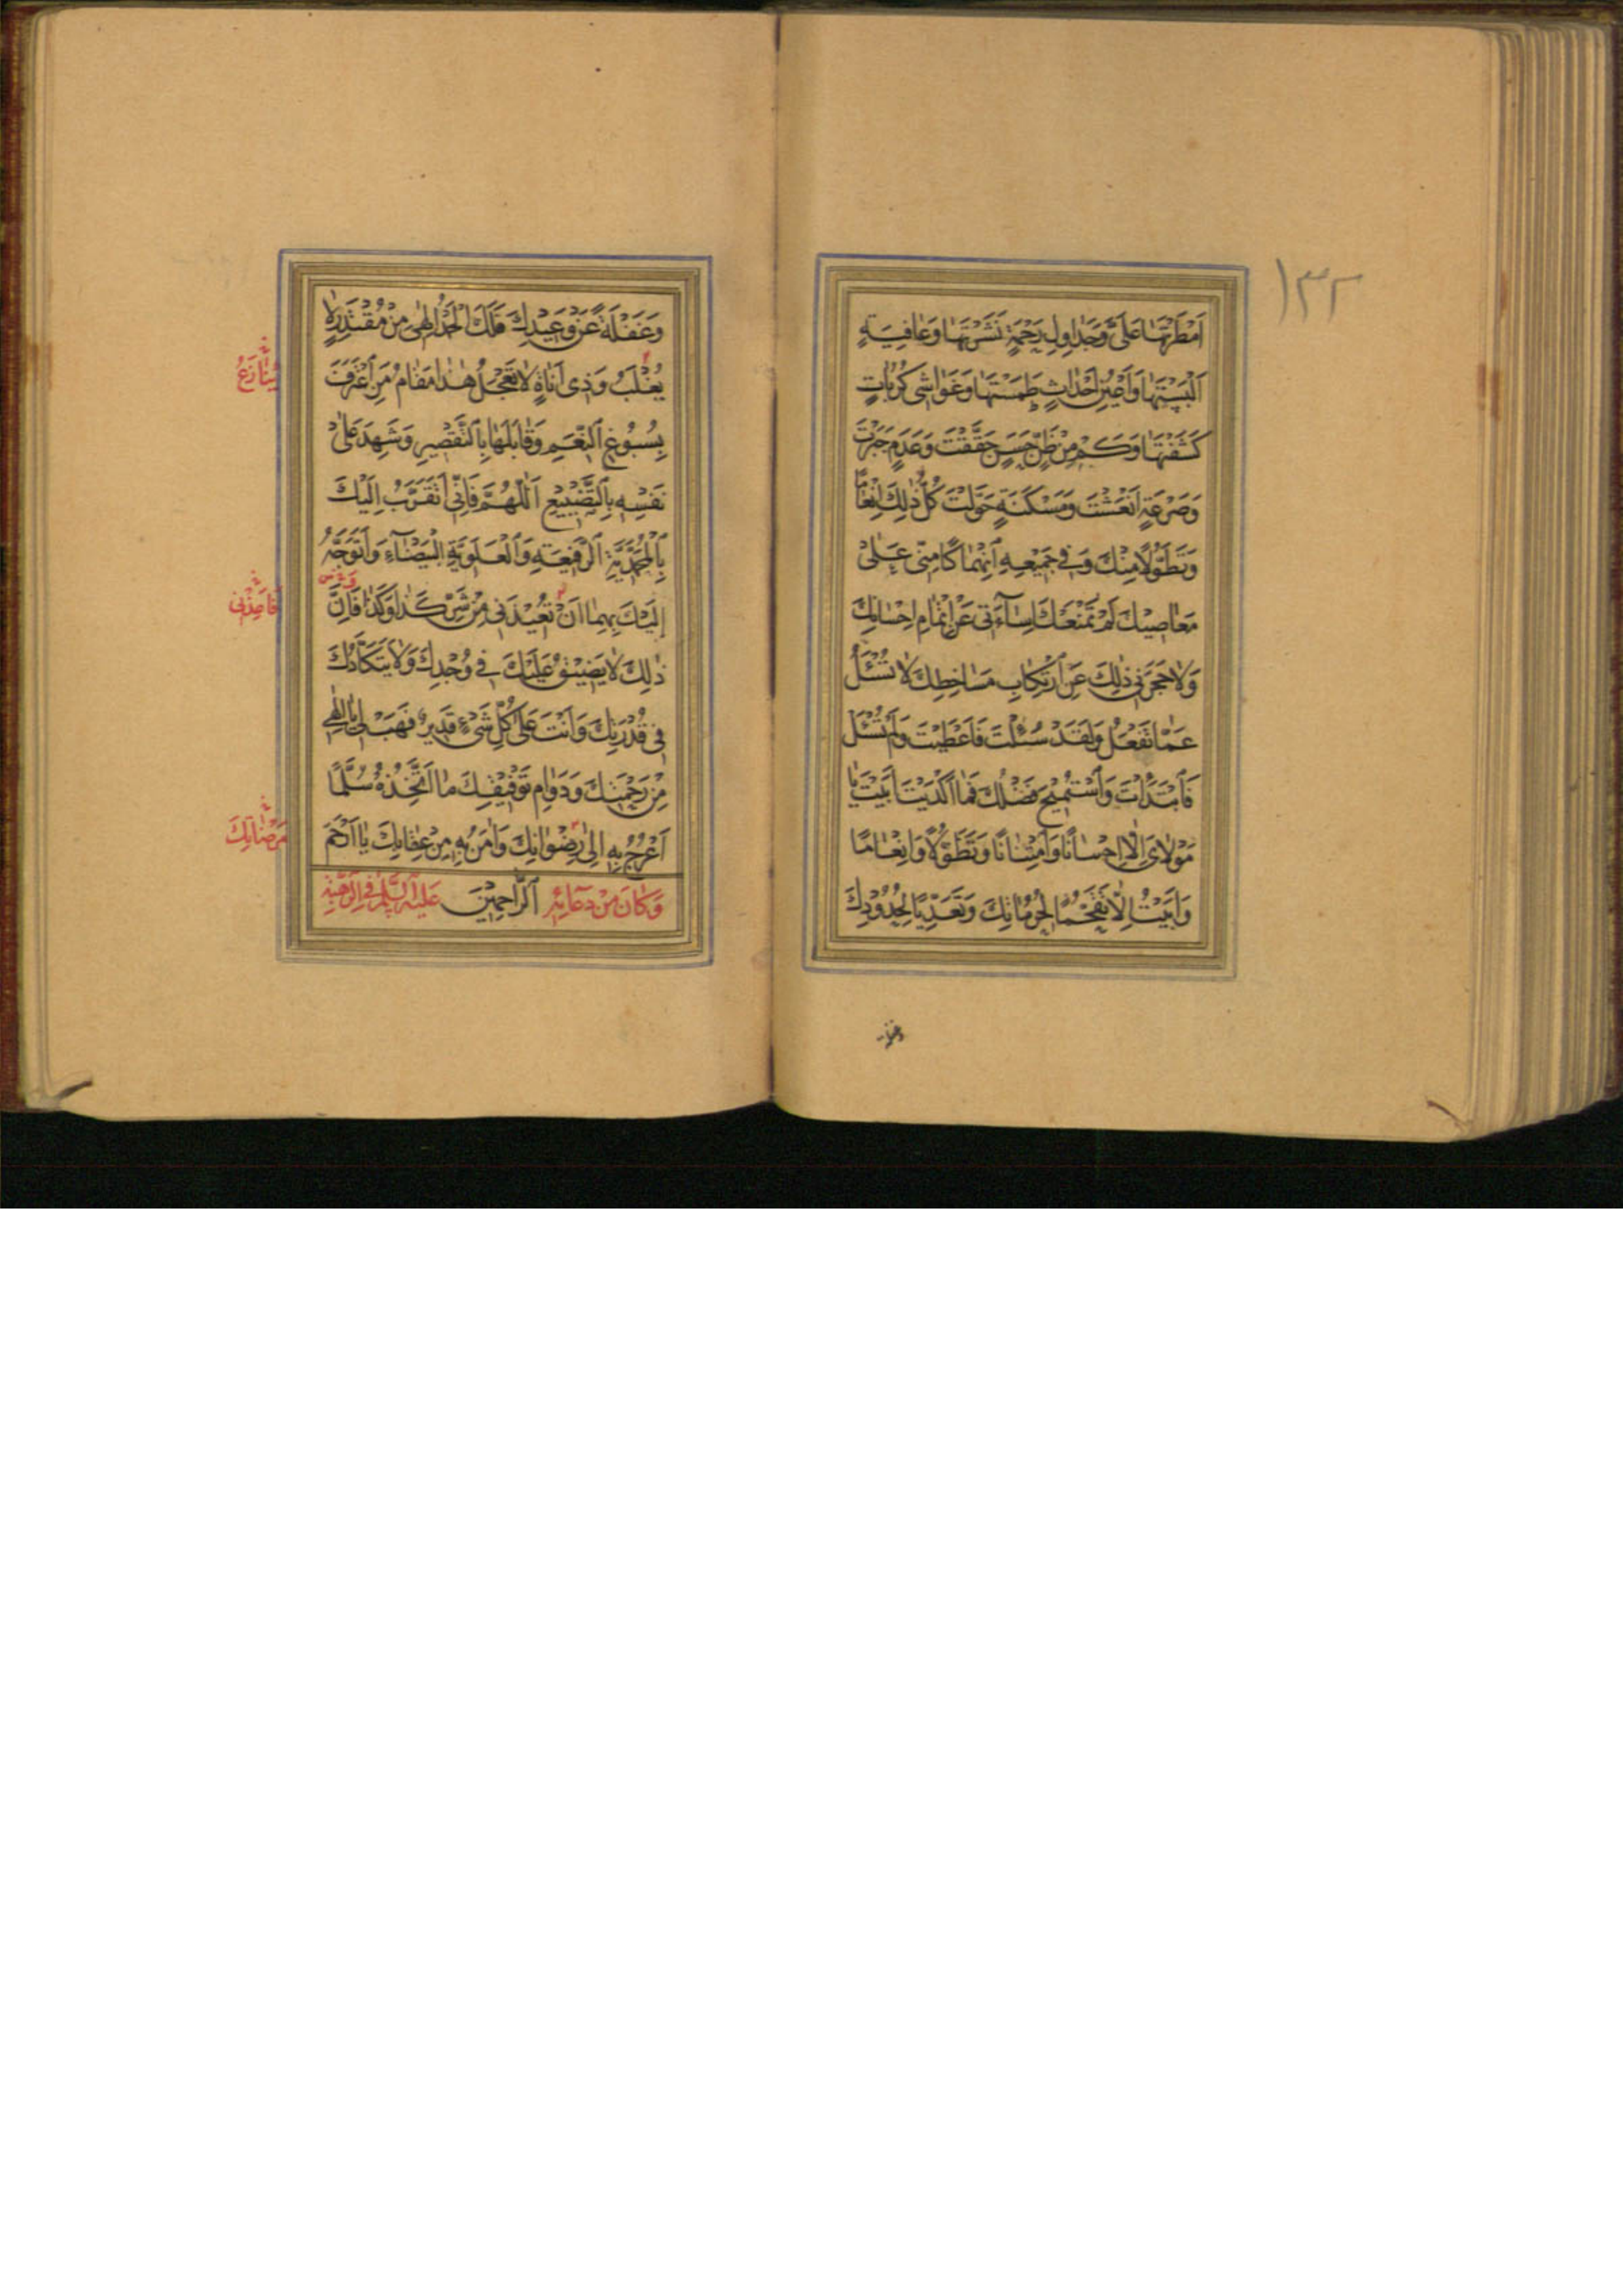 ١٣٢
اَمْطَرْتَهَا عَلَىَّ وَجَدَاوِلِ رَحْمَةٍ نَشَرْتَهَا وَعَافِيَةٍ
اَلْبَسْتَهَا وَاَعْيُنِ اَحْدَاثٍ طَمَسْتَهَا وَغَوَاشِى كُرُبَاتٍ
كَشَفْتَهَا وَكَمْ مِنْ ظَنٍّ حَسَنٍ حَقَّقْتَ وَعَدَمٍ جَبَرْتَ
وَصَرْعَةٍ اَنْعَشْتَ وَمَسْكَنَةٍ حَوَّلْتَ كُلُّ ذٰلِكَ اِنْعَامًا
وَتَطَوُّلًا مِنْكَ وَفِى جَمِيْعِهِ اَنْهِمَاكًا مِنِّى عَلٰى
مَعَاصِيْكَ لَمْ تَمْنَعْكَ اِسَآءَتِى عَنْ اِتْمَامِ اِحْسَانِكَ
وَلَا حَجَرَنِى ذٰلِكَ عَنِ ارْتِكَابِ مَسَاخِطِكَ لَا تُسْئَلُ
عَمَّا تَفْعَلُ وَلَقَدْ سُئِلْتَ فَاَعْطَيْتَ وَلَمْ تُسْئَلْ
فَابْتَدَأْتَ وَاسْتُمِيْحَ فَضْلُكَ فَمَا اَكْدَيْتَ اَبَيْتَ يَا
مَوْلَاىَ اِلَّا اِحْسَانًا وَامْتِنَانًا وَتَطَوُّلًا وَاِنْعَامًا
وَاَبَيْتُ اِلَّا تَقَحُّمًا لِحُرُمَاتِكَ وَتَعَدِّيًا لِحُدُوْدِكَ
وَغَفْلَةً عَنْ وَعِيْدِكَ فَلَكَ الْحَمْدُ اِلٰهِى مِنْ مُقْتَدِرٍ لَا
يُغْلَبُ وَذِى اَنَاةٍ لَا تَعْجَلُ هٰذَا مَقَامُ مَنِ اعْتَرَفَ
يُنَازَعُ
بِسُبُوْغِ النِّعَمِ وَقَابَلَهَا بِالتَّقْصِيْرِ وَشَهِدَ عَلٰى
نَفْسِهِ بِالتَّضْيِيْعِ اَللّٰهُمَّ فَاِنِّى اَتَقَرَّبُ اِلَيْكَ
بِالْمُحَمَّدِيَّةِ الرَّفِيْعَةِ وَالْعَلَوِيَّةِ الْبَيْضَآءِ وَاَتَوَجَّهُ
اِلَيْكَ بِهِمَا اَنْ تُعِيْذَنِى مِنْ شَرِّ كَذَا وَكَذَا فَاِنَّ
فَاَعِذْنِى
ذٰلِكَ لَا يَضِيْقُ عَلَيْكَ فِى وُجْدِكَ وَلَا يَتَكَأَّدُكَ
فِى قُدْرَتِكَ وَاَنْتَ عَلٰى كُلِّ شَىْءٍ قَدِيْرٌ فَهَبْ لِى يَا اِلٰهِى
مِنْ رَحْمَتِكَ وَدَوَامِ تَوْفِيْقِكَ مَا اَتَّخِذُهُ سُلَّمًا
اَعْرُجُ بِهِ اِلٰى رِضْوَانِكَ وَاٰمَنُ بِهِ مِنْ عِقَابِكَ يَا اَرْحَمَ
مَرْضَاتِكَ
وَكَانَ مِنْ دُعَائِهِ الرَّاحِمِيْنَ عَلَيْهِ السَّلَمُ فِى الرَّهْبَةِ